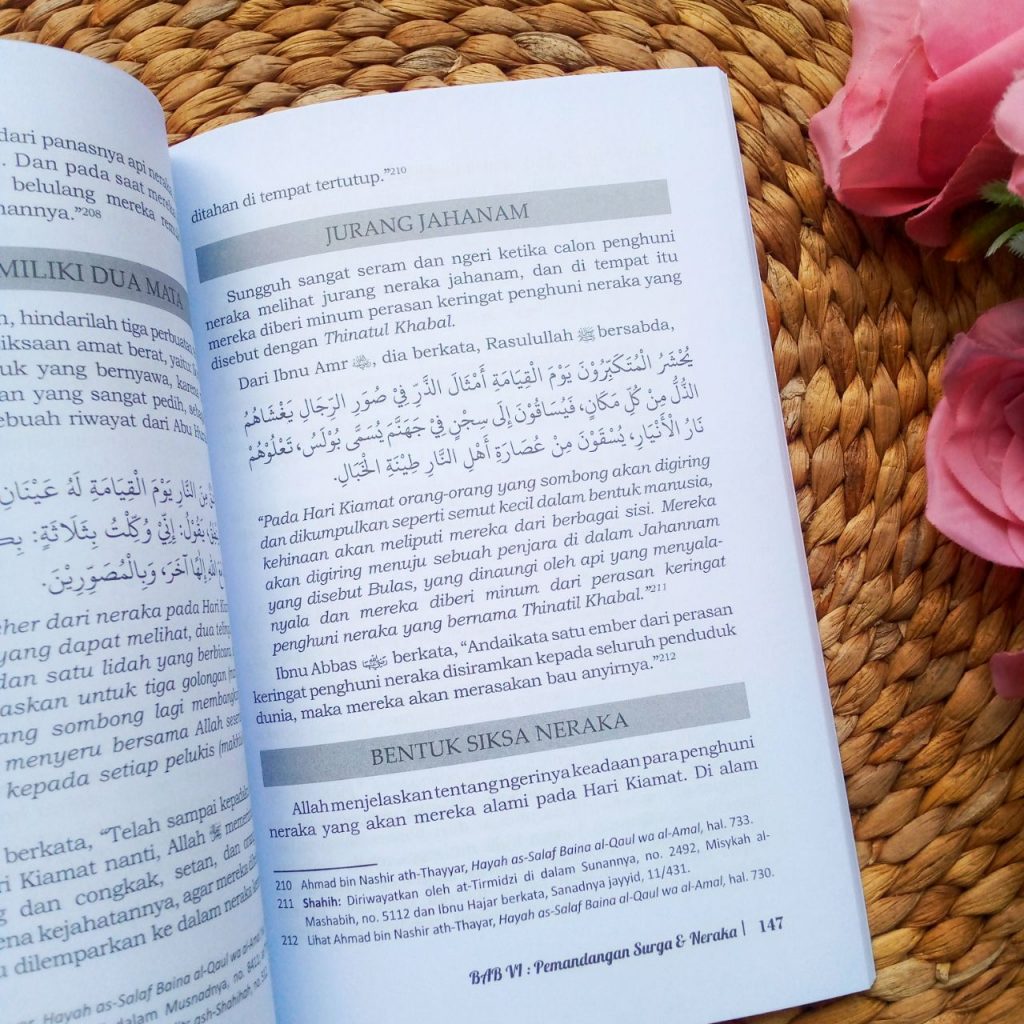 dari panasnya api neraka
. Dan pada saat mereka
belulang mereka
nannya.”208
MILIKI DUA MATA
, hindarilah tiga perbuatan
iksaan amat berat, yaitu:
uk yang bernyawa, karena
an yang sangat pedih,
ebuah riwayat dari Abu
مِنَ النَّارِ يَوْمَ الْقِيَامَةِ لَهُ عَيْنَانِ
يَقُولُ: إِنِّيْ وُكِّلْتُ بِثَلَاثَةٍ:
إِلٰهًا آخَرَ، وَبِالْمُصَوِّرِيْنَ.
eher dari neraka pada Hari
yang dapat melihat, dua
dan satu lidah yang berbicara,
askan untuk tiga golongan
ang sombong lagi
menyeru bersama Allah
kepada setiap pelukis
berkata, “Telah sampai
ri Kiamat nanti, Allah ﷺ
g dan congkak, setan, dan
ena kejahatannya, agar mereka
u dilemparkan ke dalam neraka
Hayah as-Salaf Baina al-Qaul wa al-Amal,
dalam Musnadnya, no.
ash-Shahihah, no.
ditahan di tempat tertutup.”210
JURANG JAHANAM
Sungguh sangat seram dan ngeri ketika calon penghuni
neraka melihat jurang neraka jahanam, dan di tempat itu
mereka diberi minum perasan keringat penghuni neraka yang
disebut dengan Thinatul Khabal.
Dari Ibnu Amr , dia berkata, Rasulullah ﷺ bersabda,
يُحْشَرُ الْمُتَكَبِّرُوْنَ يَوْمَ الْقِيَامَةِ أَمْثَالَ الذَّرِّ فِيْ صُوَرِ الرِّجَالِ يَغْشَاهُمُ
الذُّلُّ مِنْ كُلِّ مَكَانٍ، فَيُسَاقُوْنَ إِلَى سِجْنٍ فِيْ جَهَنَّمَ يُسَمَّى بُوْلَسُ، تَعْلُوْهُمْ
نَارُ الْأَنْيَارِ، يُسْقَوْنَ مِنْ عُصَارَةِ أَهْلِ النَّارِ طِيْنَةِ الْخَبَالِ.
“Pada Hari Kiamat orang-orang yang sombong akan digiring
dan dikumpulkan seperti semut kecil dalam bentuk manusia,
kehinaan akan meliputi mereka dari berbagai sisi. Mereka
akan digiring menuju sebuah penjara di dalam Jahannam
yang disebut Bulas, yang dinaungi oleh api yang menyala-
nyala dan mereka diberi minum dari perasan keringat
penghuni neraka yang bernama Thinatil Khabal.”211
Ibnu Abbas berkata, “Andaikata satu ember dari perasan
keringat penghuni neraka disiramkan kepada seluruh penduduk
dunia, maka mereka akan merasakan bau anyirnya.”212
BENTUK SIKSA NERAKA
Allah menjelaskan tentang ngerinya keadaan para penghuni
neraka yang akan mereka alami pada Hari Kiamat. Di alam
210 Ahmad bin Nashir ath-Thayyar, Hayah as-Salaf Baina al-Qaul wa al-Amal, hal. 733.
211 Shahih: Diriwayatkan oleh at-Tirmidzi di dalam Sunannya, no. 2492, Misykah al-
Mashabih, no. 5112 dan Ibnu Hajar berkata, Sanadnya jayyid, 11/431.
212 Lihat Ahmad bin Nashir ath-Thayar, Hayah as-Salaf Baina al-Qaul wa al-Amal, hal. 730.
BAB VI : Pemandangan Surga & Neraka | 147